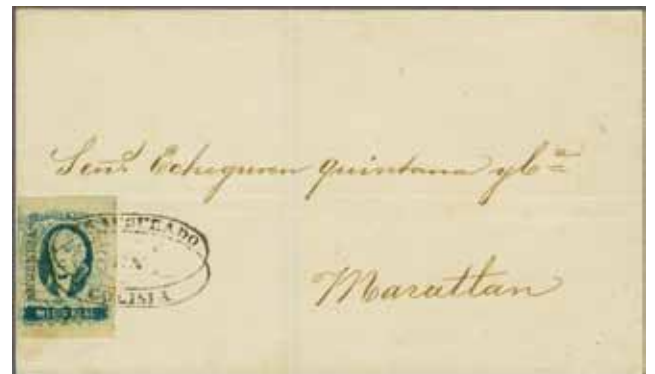 Señ.s Echeguren Quintana y C.ª
Mazatlan
FRANQUEADO
EN
COLIMA
MEDIO REAL